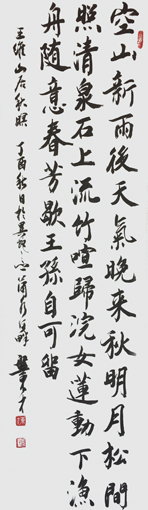 空山新雨後天氣晚來秋明月松間
照清泉石上流竹喧歸浣女蓮動下漁
舟隨意春芳歇王孫自可留
王維山居秋暝 丁酉秋日於